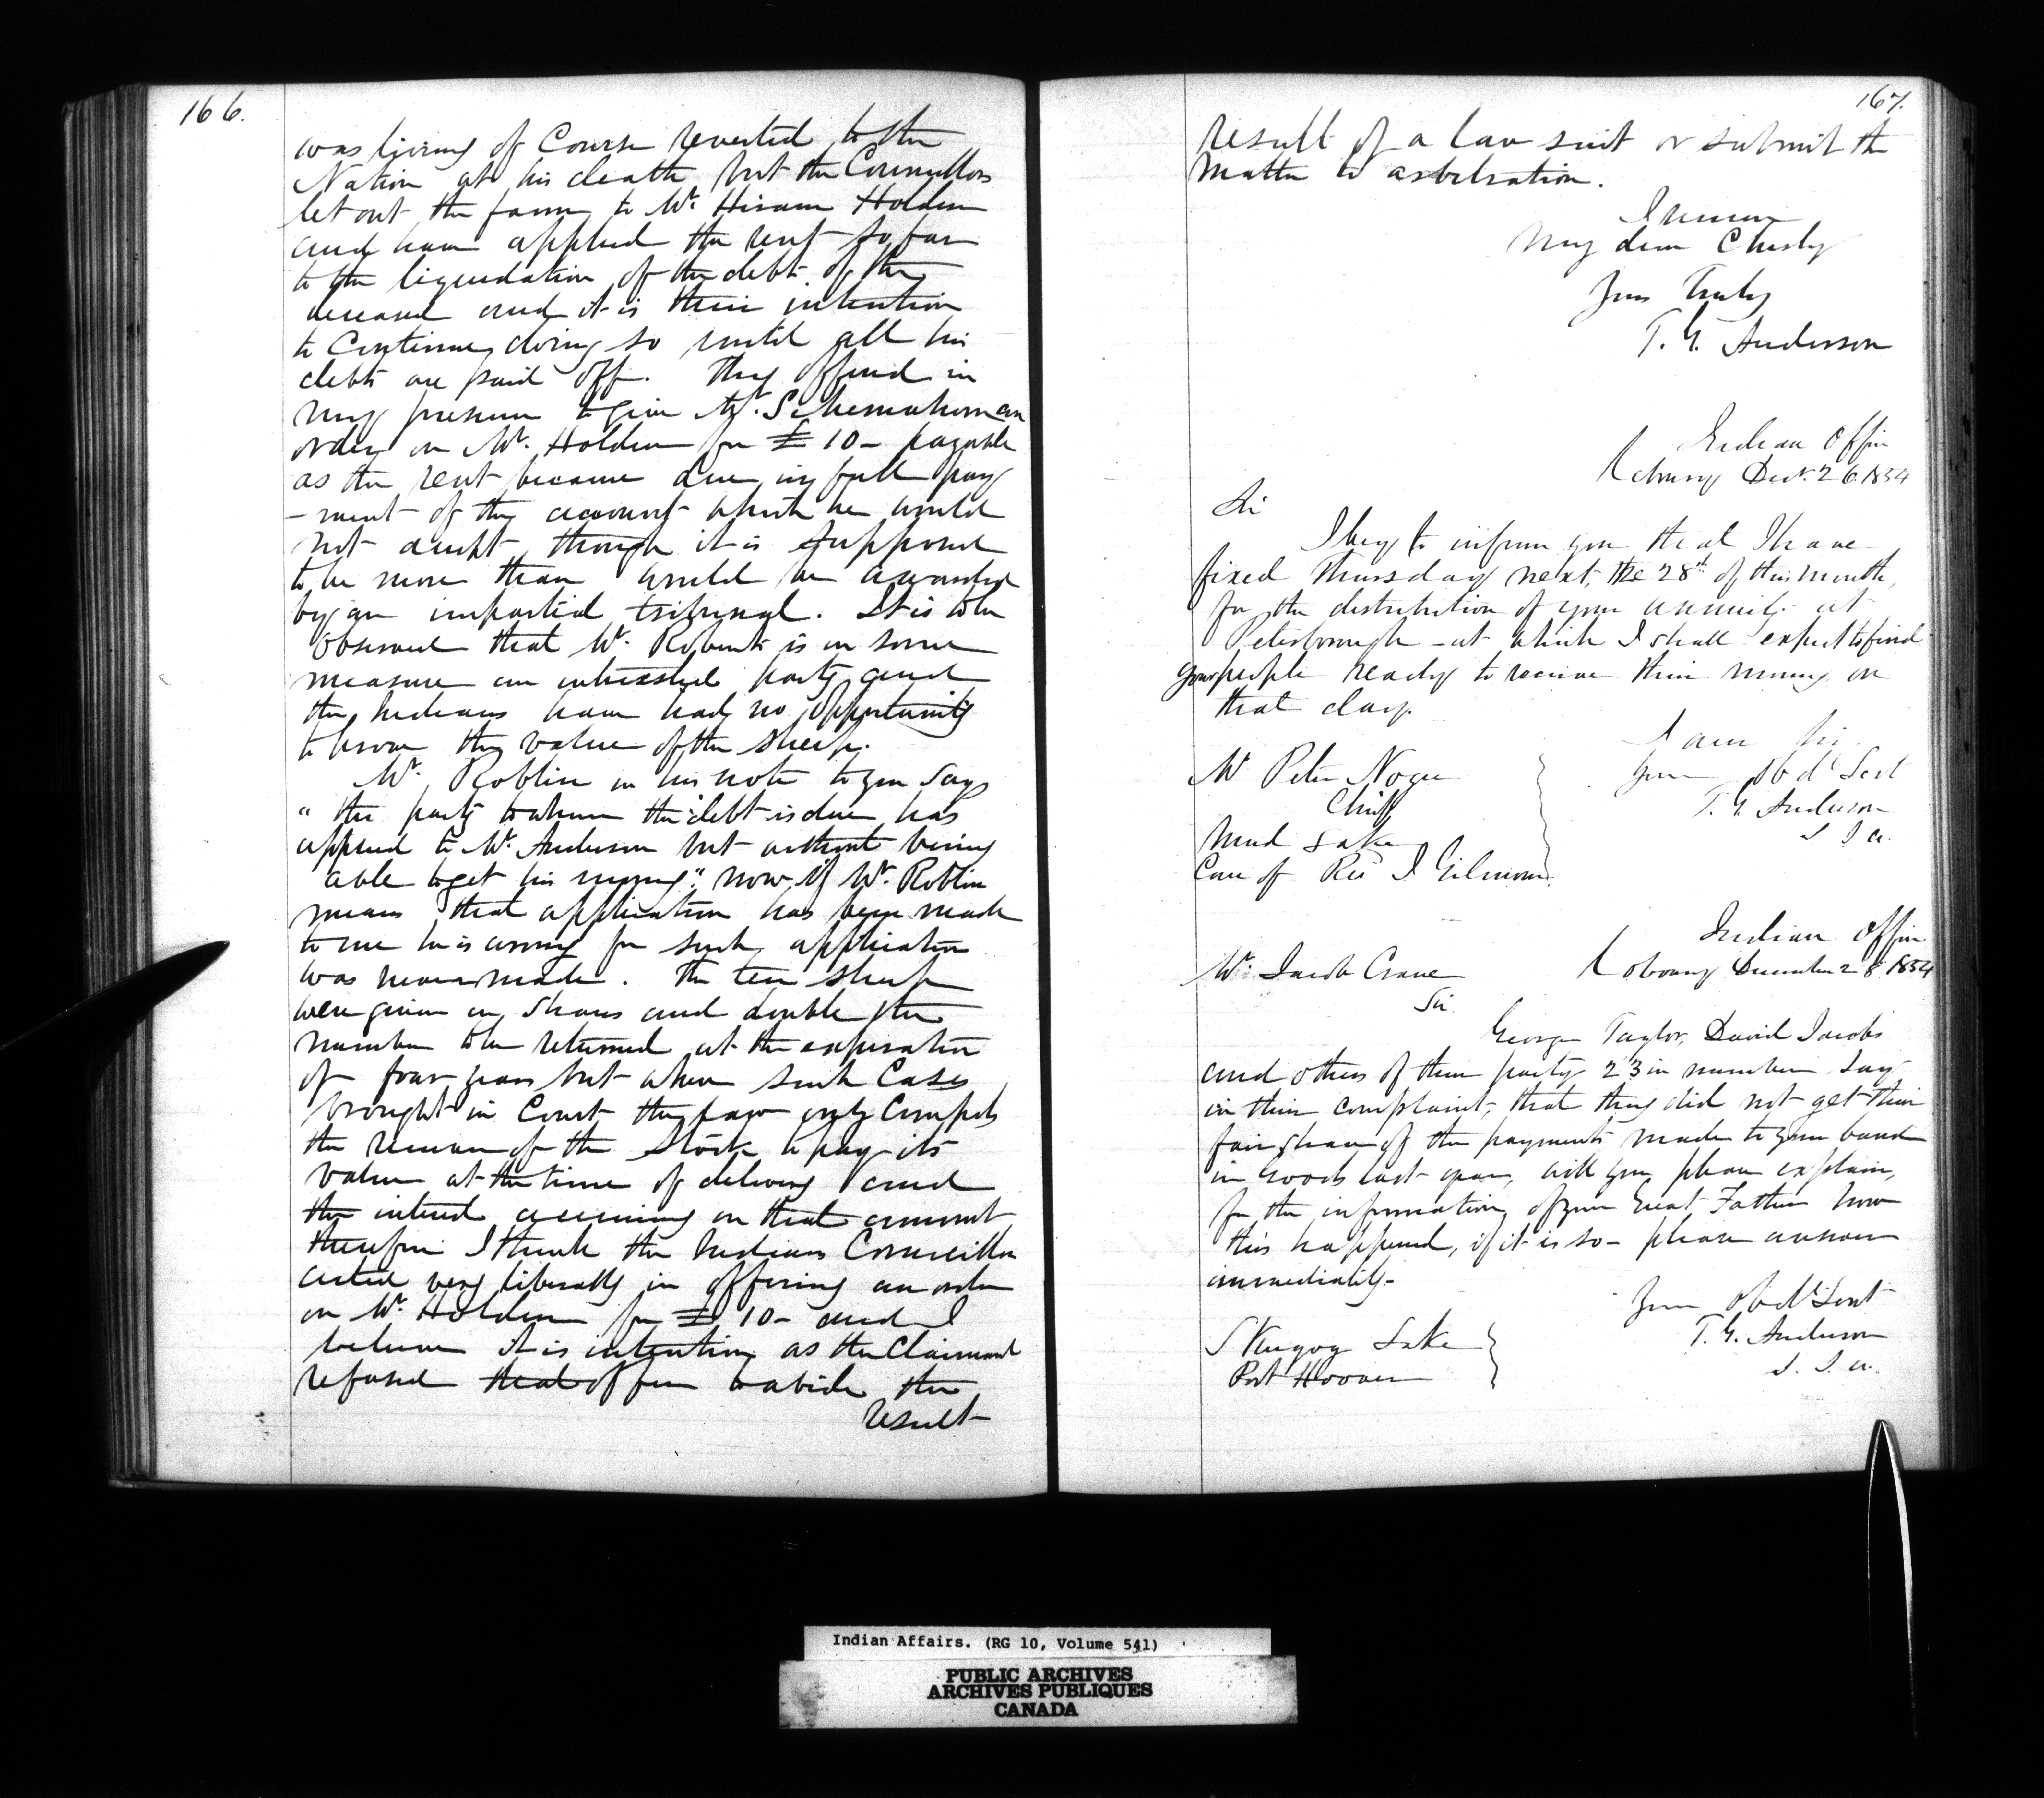 166.
was living of Course reverted to the
Nation at his death but the Councillors
let out the farm to Mr. Hiram Holden
and have applied the rent so far
to the liquidation of the debt of the
deceased and it is their intention
to Continue doing so until all his
debts are paid off. They offered in
my presence to give Mr. Schemahorn an
order on Mr. Holden for £10- payable
as the rent became due in full pay
-ment of the account which he would
not accept though it is supposed
to be more than would be awarded
by an impartial tribunal. It is to be
observed that Mr. is in some
measure an interested party and
the Indians have had no opportunity
to know the value of the sheep.
Mr. Roblin in his note to you Says
" the party to whom the debt is due has
applied to Mr. Anderson but without being
able to get his money". now if Mr. Roblin
means that application has been made
to me he is wrong for such application
was never made. The ten sheep
were given on Shares and double the
number to be returned at the expiration
of four years but when such Cases
brought in Court the law only Compels
the receiver of the Stock to pay its
value at the time of delivery and
the interest accruing on that amount
therefore I think the Indians Councillors
acted very liberally in offering an order
on Mr. Holden for £10- and I
believe it is intention as the Claimant
refused that offer to abide the
result
167.
result of a law suit or submit the
Matter to arbitration.
I remain
My dear Chesley
Yours Truly
T. G. Anderson
Indian Office
Cobourg Decr. 26. 1854
Sir
I beg to inform you that I have
fixed Thursday next, the 28th of this month,
for the distribution of your annuity at
Peterborough - at which I shall expect to find
your people ready to receive their money on
that day.
I am Sir
Your Obdt Servt
T. G. Anderson
S I A.
Mr Peter Nogee
Chief
Mud Lake
Care of Rev J Gilmour.
Indian Office
Cobourg December 28. 1854
Mr. Jacob Crane
Sir
George Taylor, David Jacobs
and others of their party 23 in number say
in their complaint, that they did not get their
fair share of the payments made to your band
in goods last year, will you please explain,
for the information of your Great Father how
this happened, if it is so - please answer
immediately-
Your Obdt Servt
T. G. Anderson
S. I. A.
Skugog Lake
Port Hoover
Indian Affairs. (RG 10, Volume 541)
PUBLIC ARCHIVES
ARCHIVES PUBLIQUES
CANADA